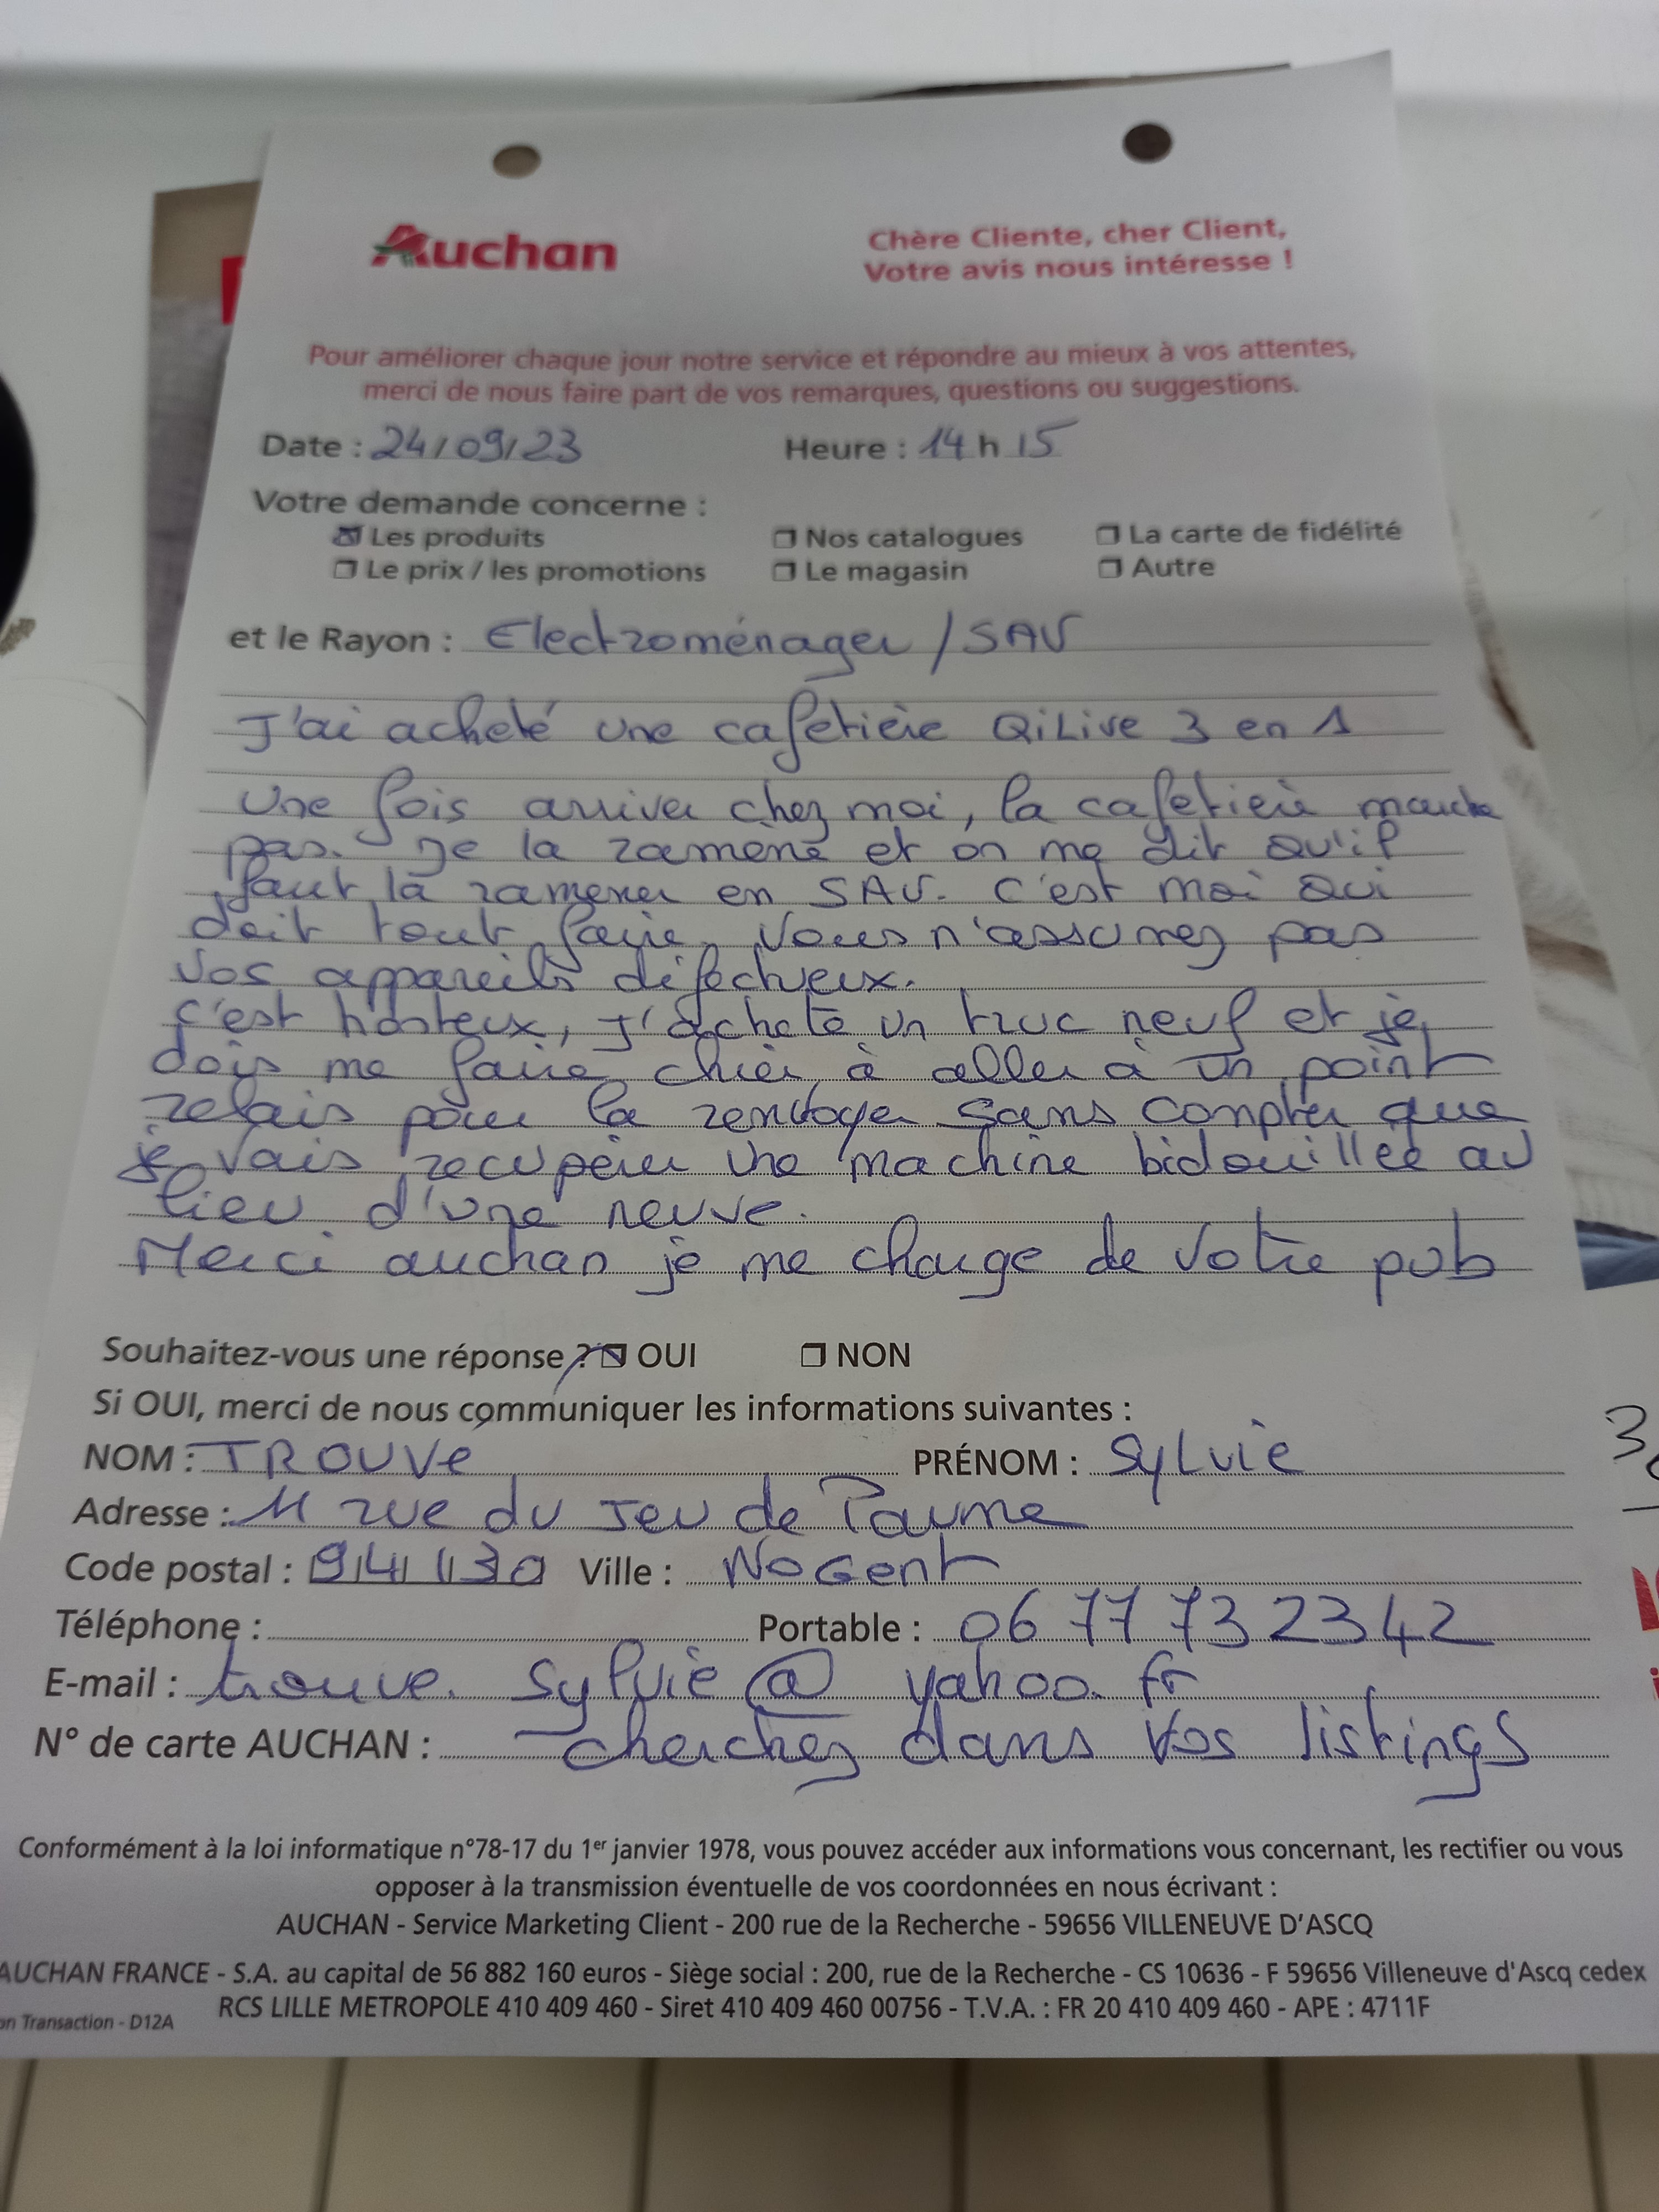 Auchan
Chère Cliente, cher Client,
Votre avis nous intéresse !
Pour améliorer chaque jour notre service et répondre au mieux à vos attentes,
merci de nous faire part de vos remarques, questions ou suggestions.
Date : 24/09/23 Heure : 14 h 15
Votre demande concerne :
Les produits Nos catalogues La carte de fidélité
Le prix / les promotions Le magasin Autre
et le Rayon : Electroménager / SAV
J'ai acheté une cafetière QiLive 3 en 1
Une fois arriver chez moi, la cafetière marche
pas. Je la ramène et on me dit qu'il
faut la ramener en SAV. C'est moi qui
doit tout faire, Vous n'assumez pas
vos appareils défectueux.
C'est honteux, J'achète un truc neuf et je
dois me faire chier à aller à un point
relais pour la renvoyer sans compter que
je vais recupérer une machine bidouillée au
lieu d'une neuve.
Merci auchan je me charge de votre pub
Souhaitez-vous une réponse ? OUI NON
Si OUI, merci de nous communiquer les informations suivantes :
NOM : TROUVé PRÉNOM : Sylvie
Adresse : 11 rue du Jeu de Paume
Code postal : 94130 Ville : NoGent
Téléphone : Portable : 06 77 73 23 42
E-mail : trouve.sylvie@yahoo.fr
N° de carte AUCHAN : cherchez dans vos listings
Conformément à la loi informatique n°78-17 du 1er janvier 1978, vous pouvez accéder aux informations vous concernant, les rectifier ou vous
opposer à la transmission éventuelle de vos coordonnées en nous écrivant :
AUCHAN - Service Marketing Client - 200 rue de la Recherche - 59656 VILLENEUVE D'ASCQ
AUCHAN FRANCE - S.A. au capital de 56 882 160 euros - Siège social : 200, rue de la Recherche - CS 10636 - F 59656 Villeneuve d'Ascq cedex
RCS LILLE METROPOLE 410 409 460 - Siret 410 409 460 00756 - T.V.A. : FR 20 410 409 460 - APE : 4711F
on Transaction - D12A